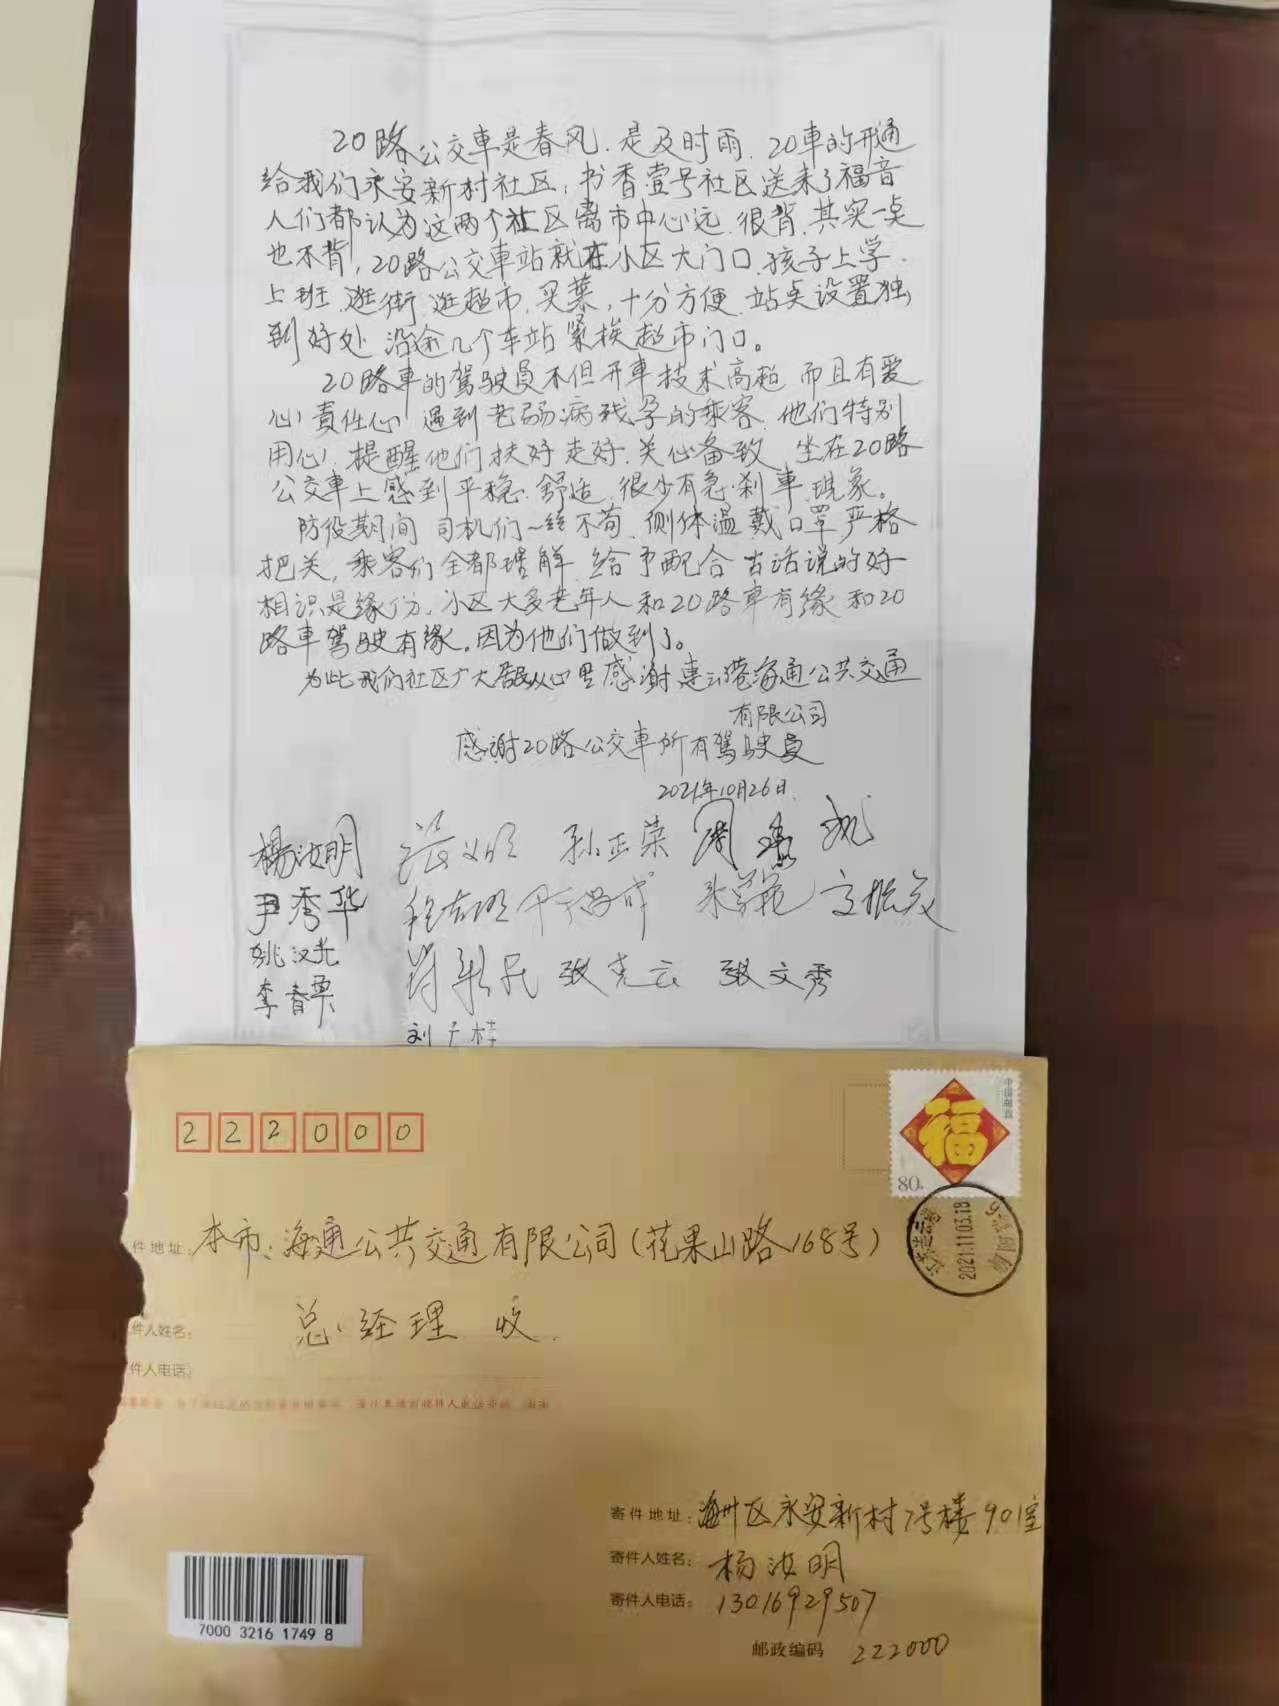 20路公交車是春风.是及时雨.20車的开通
给我们永安新村社区,书香壹号社区送来了福音
人们都认为这两个社区离市中心远.很背.其实一点
也不背,20路公交車站就在小区大门口.孩子上学.
上班.逛街.逛超市.买菜,十分方便.站点设置独
到好处 沿途几个车站紧挨超市门口。
20路車的驾驶员不但开車技术高超 而且有爱
心責任心 遇到老弱病残孕的乘客.他们特别
用心.提醒他们扶好走好.关心备致 坐在20路
公交車上感到平稳.舒适.很少有急刹車現象。
防役期间 司机们一丝不苟.侧体温戴口罩严格
把关,乘客们全都理解.给予配合 古话说的好
相识是缘份.小区大多老年人和20路車有缘和20
路車驾驶有缘.因为他们做到了。
为此我们社区广大居民从心里感谢連云港海通公共交通
有限公司
感谢20路公交車所有驾驶员
2021年10月26日.
楊汝明 孙正荣
尹秀华
姚汉光
李春栗 张克云 張文秀
刘广桂
222000
中国邮政
福
80分
2021.11.03.18
件地址: 本市:海通公共交通有限公司(花果山路168号)
件人姓名: 总经理 收.
件人电话:
寄件地址: 海州区永安新村7号楼901室
寄件人姓名: 杨汝明
寄件人电话: 13016929507
邮政编码 222000
7000 3216 1749 8